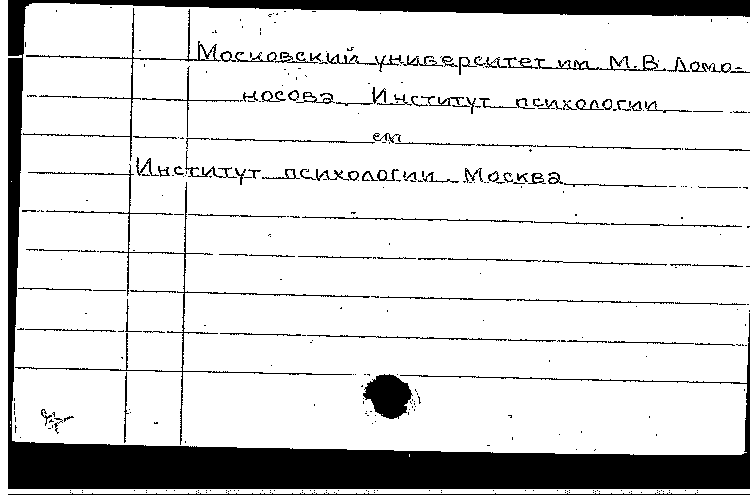 Московский университет им. М.В. Ломо-
носова. Институт психологии.
см.
Институт психологии. Москва